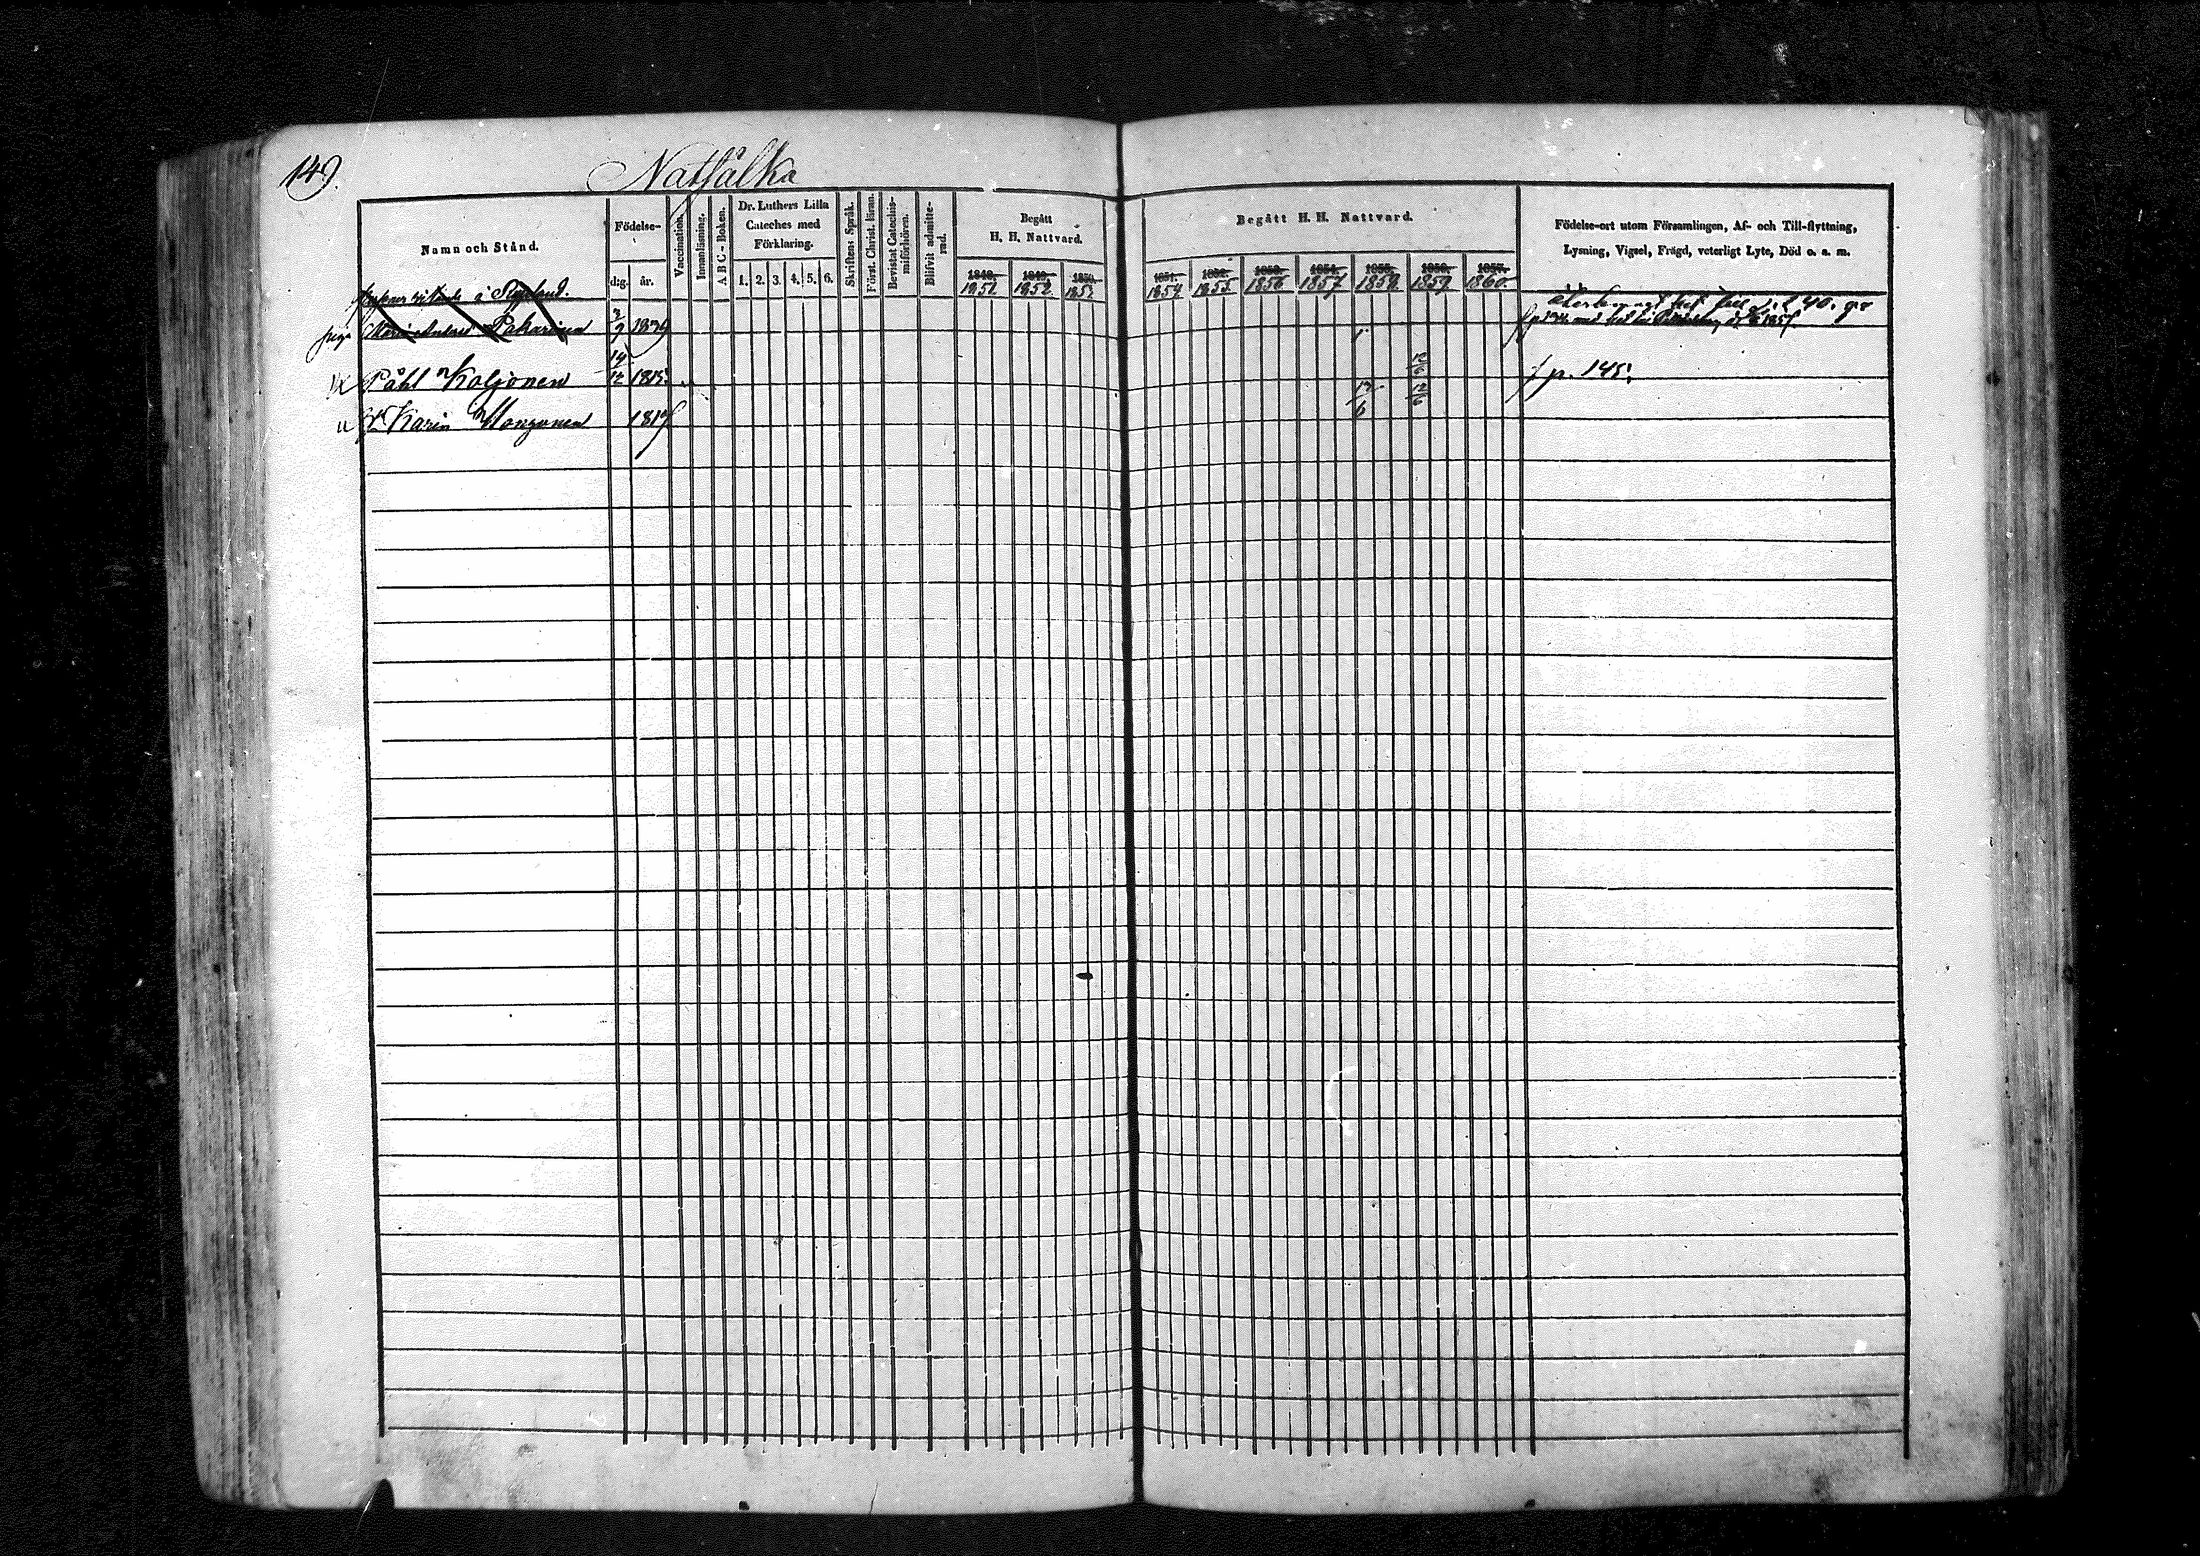 149.
Natjälka
Namn och Stånd.
Födelse-
d:g.
år.
Vaccination.
Innanläsning.
ABC-Boken.
Dr. Luthers Lilla
Cateches med
Förklaring.
1. 2. 3. 4. 5. 6.
Skriftens Språk.
Först. Christ. läran.
Bevistat Catechis-
miförhören.
Blifvit admitte-
rad.
Begått
H. H. Nattvard.
1848. 1849. 1850.
1851. 1852. 1853.
Begått H. H. Nattvard.
1851. 1852. 1853. 1854. 1855. 1856. 1857.
1854. 1855. 1856. 1857 1858. 1859. 1860.
Födelse-ort utom Församlingen, Af- och Till-flyttning,
Lysning, Vigsel, Frägd, veterligt Lyte, Död o. s. m.
i
till
Pakarinen
1857.
Påhl Koljonen 14/12 1815. 12/6 f p. 145.
Karin Mongonen 1817 12/6 12/6